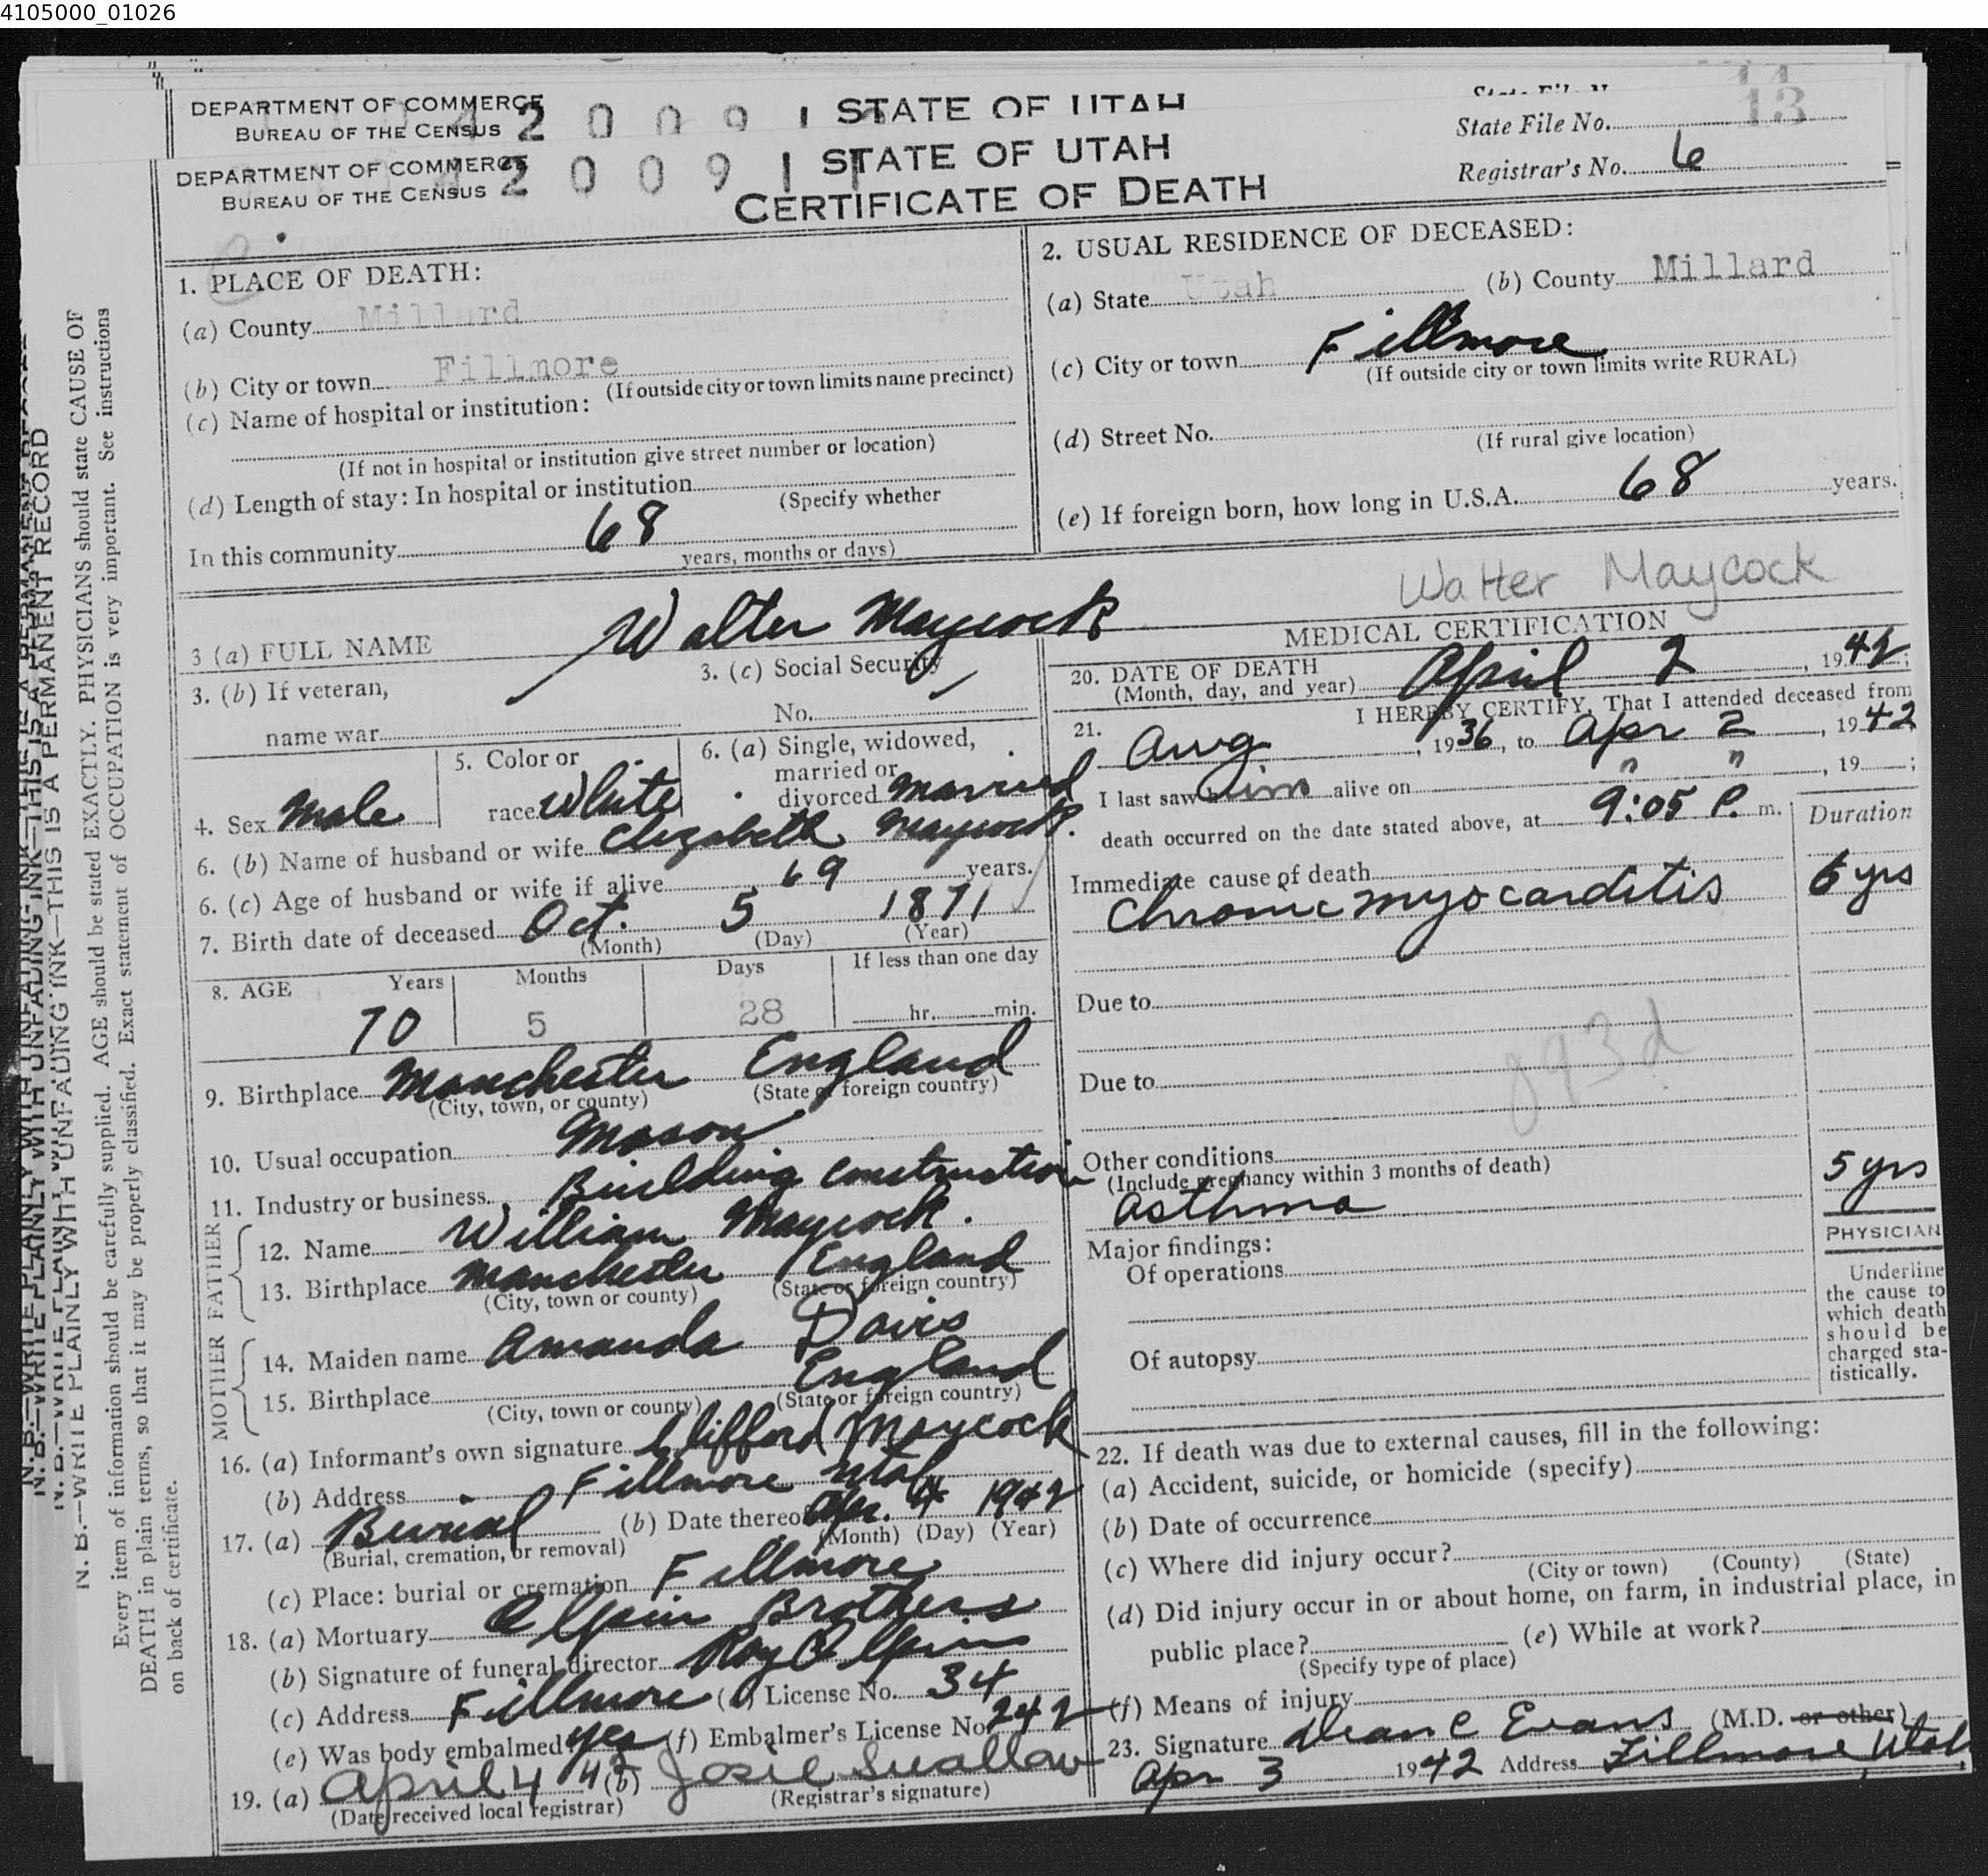 4105000_01026
DEPARTMENT OF COMMERCE
BUREAU OF THE CENSUS
2 0 0 9 1
STATE OF UTAH
State File No. 13
DEPARTMENT OF COMMERCE
BUREAU OF THE CENSUS
2 0 0 9 1
STATE OF UTAH
CERTIFICATE OF DEATH
Registrar's No. 6
1. PLACE OF DEATH:
(a) County Millard
(b) City or town Fillmore
(If outside city or town limits name precinct)
(c) Name of hospital or institution:
(If not in hospital or institution give street number or location)
(d) Length of stay: In hospital or institution
(Specify whether
In this community 68
years, months or days)
2. USUAL RESIDENCE OF DECEASED:
(a) State Utah (b) County Millard
(c) City or town Fillmore
(If outside city or town limits write RURAL)
(d) Street No.
(If rural give location)
(e) If foreign born, how long in U.S.A. 68 years.
Walter Maycock
3 (a) FULL NAME Walter Maycock
3. (b) If veteran,
name war
3. (c) Social Security
No.
4. Sex Male
5. Color or
race White
6. (a) Single, widowed,
married or
divorced married
6. (b) Name of husband or wife Elizabeth Maycock.
6. (c) Age of husband or wife if alive 69 years.
7. Birth date of deceased Oct. 5 1871
(Month) (Day) (Year)
8. AGE Years Months Days If less than one day
70 5 28 hr. min.
9. Birthplace Manchester England
(City, town, or county) (State or foreign country)
10. Usual occupation Mason
11. Industry or business Building construction
FATHER
12. Name William Maycock.
13. Birthplace Manchester England
(City, town or county) (State or foreign country)
MOTHER
14. Maiden name Amanda Davis
15. Birthplace England
(City, town or county) (State or foreign country)
16. (a) Informant's own signature Clifford Maycock
(b) Address Fillmore Utah
17. (a) Burial (b) Date thereof Apr. 4 1942
(Burial, cremation, or removal) (Month) (Day) (Year)
(c) Place: burial or cremation Fillmore
18. (a) Mortuary Olpin Brothers
(b) Signature of funeral director Roy Olpin
(c) Address Fillmore (d) License No. 34
(e) Was body embalmed? yes (f) Embalmer's License No. 242
19. (a) April 4 42 (b) Josie Swallow
(Date received local registrar) (Registrar's signature)
MEDICAL CERTIFICATION
20. DATE OF DEATH
(Month, day, and year) April 2, 1942;
21. I HEREBY CERTIFY, That I attended deceased from
Aug, 1936, to Apr 2, 1942
I last saw him alive on " ", 19 ;
death occurred on the date stated above, at 9:05 P. m.
Duration
Immediate cause of death
Chronic myocarditis 6 yrs
Due to
893d
Due to
Other conditions
(Include pregnancy within 3 months of death)
asthma 5 yrs
Major findings:
Of operations
Of autopsy
PHYSICIAN
Underline
the cause to
which death
should be
charged sta-
tistically.
22. If death was due to external causes, fill in the following:
(a) Accident, suicide, or homicide (specify)
(b) Date of occurrence
(c) Where did injury occur?
(City or town) (County) (State)
(d) Did injury occur in or about home, on farm, in industrial place, in
public place? (e) While at work?
(Specify type of place)
(f) Means of injury
23. Signature Dean C Evans (M.D. or other)
Apr 3 1942 Address Fillmore, Utah
N. B.—WRITE PLAINLY WITH UNFADING INK—THIS IS A PERMANENT RECORD
Every item of information should be carefully supplied. AGE should be stated EXACTLY. PHYSICIANS should state CAUSE OF
DEATH in plain terms, so that it may be properly classified. Exact statement of OCCUPATION is very important. See instructions
on back of certificate.